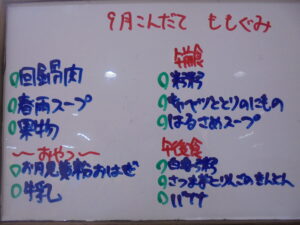 9月こんだて ももぐみ
回鍋肉
春雨スープ
果物
〜おやつ〜
お月見黄粉おはぎ
牛乳
午前食
粥
キャベツととりのにもの
はるさめスープ
午後食
白身粥
さつま芋とりんごのきんとん
バナナ